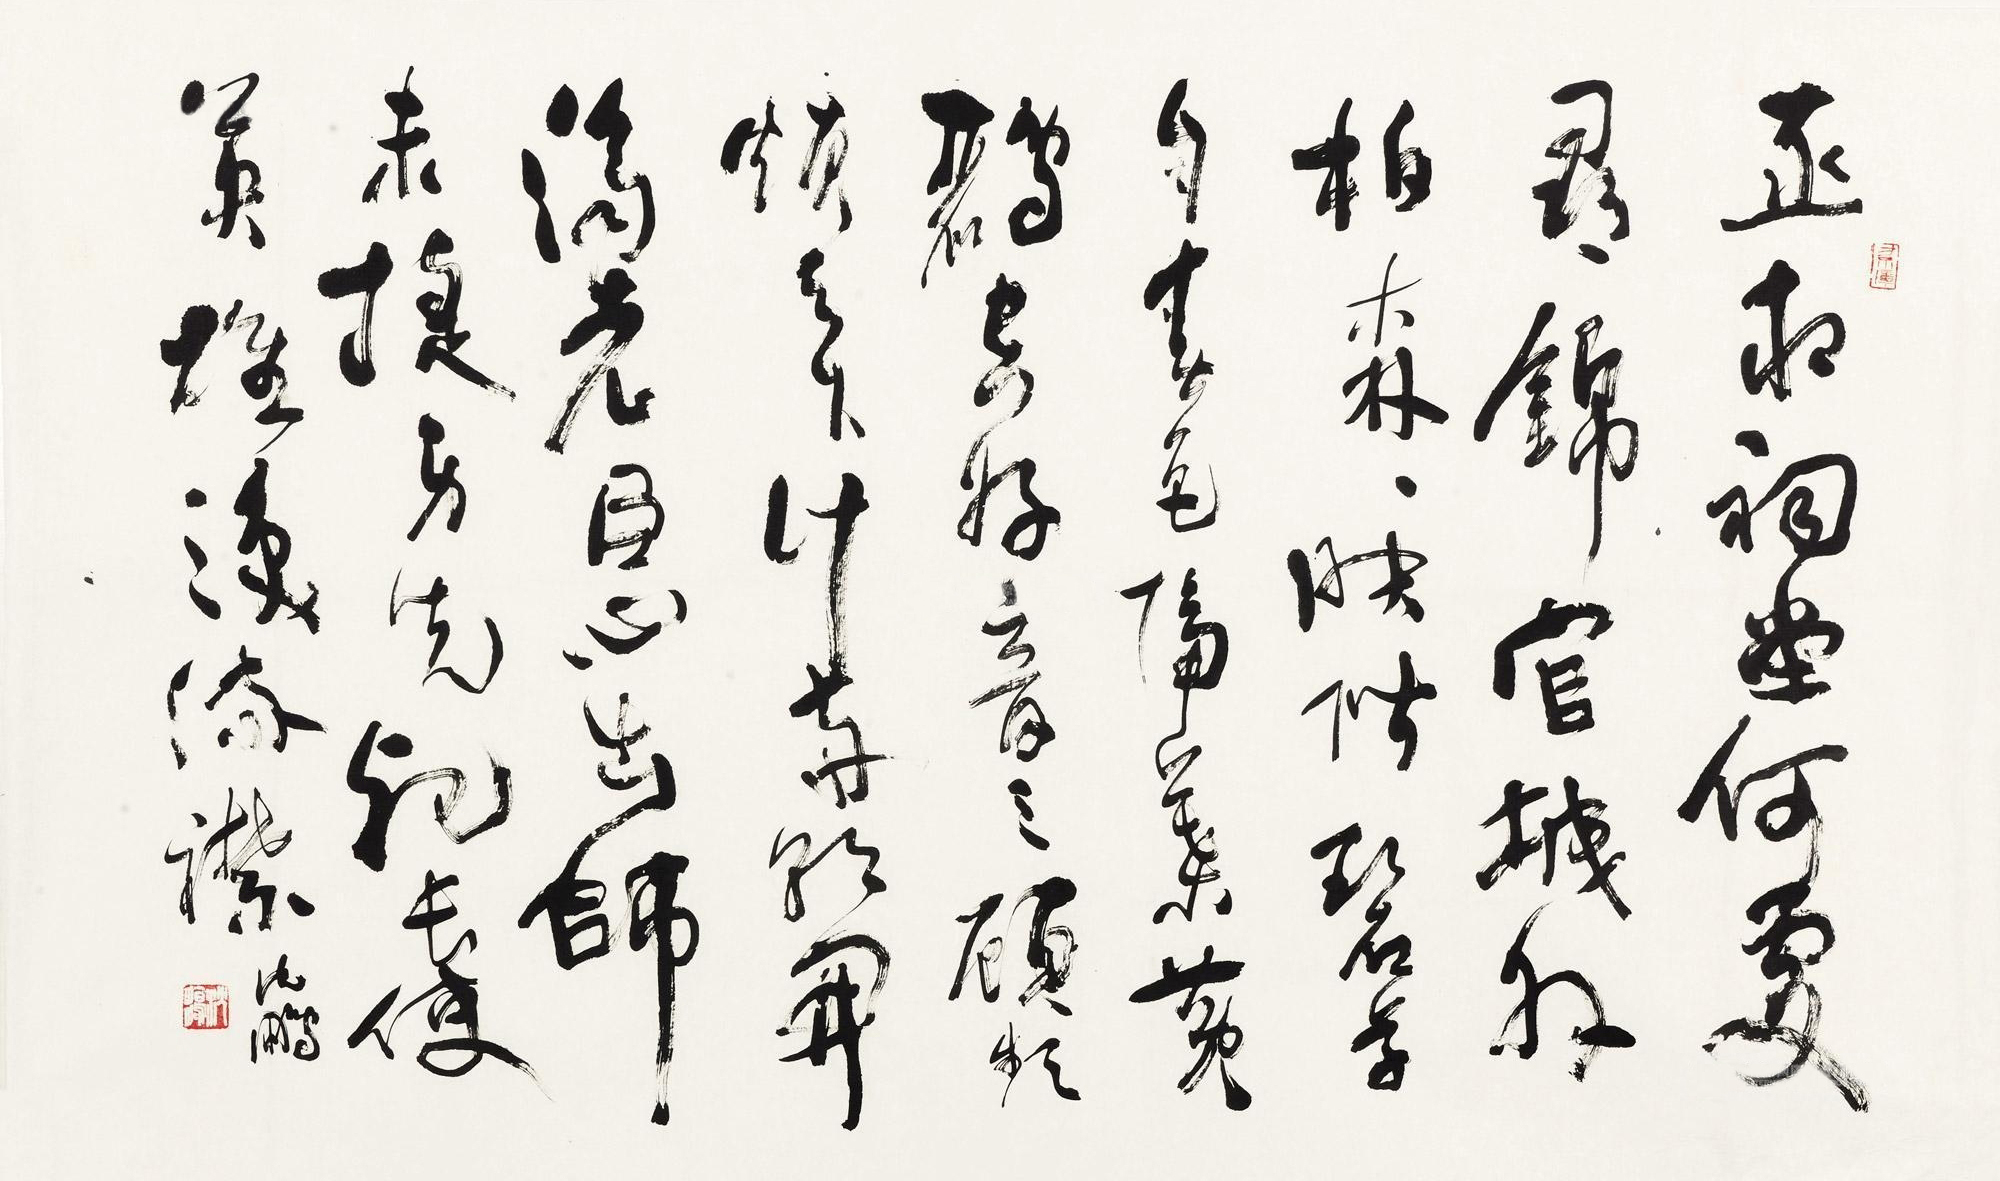 丞相祠堂何處
尋錦官城外
柏森、映階碧草
自春色隔葉黄
鸝空好音三顧頻
煩天下計兩朝開
濟老臣心出師
未捷身先死長使
英雄淚滿襟
沈鵬